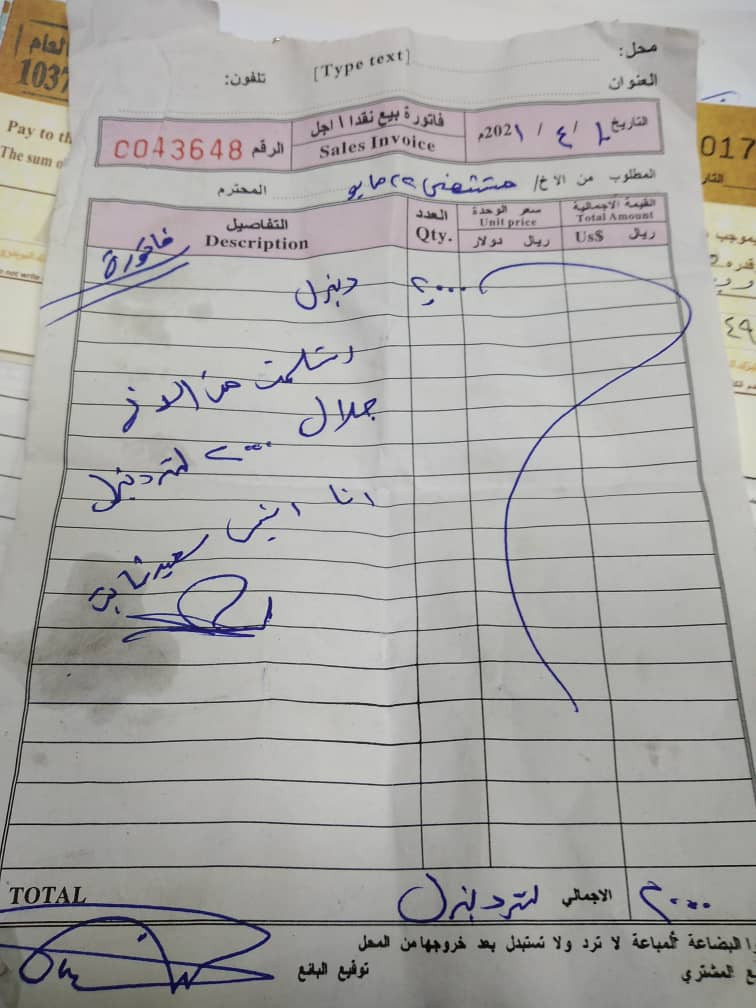 محل:
[Type text]
تلفون:
العنوان
التاريخ ٤ / ٢٠٢١م
فاتورة بيع نقدا / اجل
Sales Invoice
الرقم C043648
المطلوب من الاخ/ مستشفى ٢٢ مايو المحترم
التفاصيل
Description
العدد
Qty.
سعر الوحدة
Unit price
ريال دولار
القيمة الاجمالية
Total Amount
ريال Us$
فاتورة
ديزل
استلمت من الاخ
جلال
لتر ديزل
انا انيس
سعيد ثابت
TOTAL
الاجمالي
لتر ديزل
البضاعة المباعة لا ترد ولا تستبدل بعد خروجها من المحل
توقيع البائع
المشتري
العام
1037
Pay to th
The sum o
o not write
017
التار
بموجب
قدره
٤٩